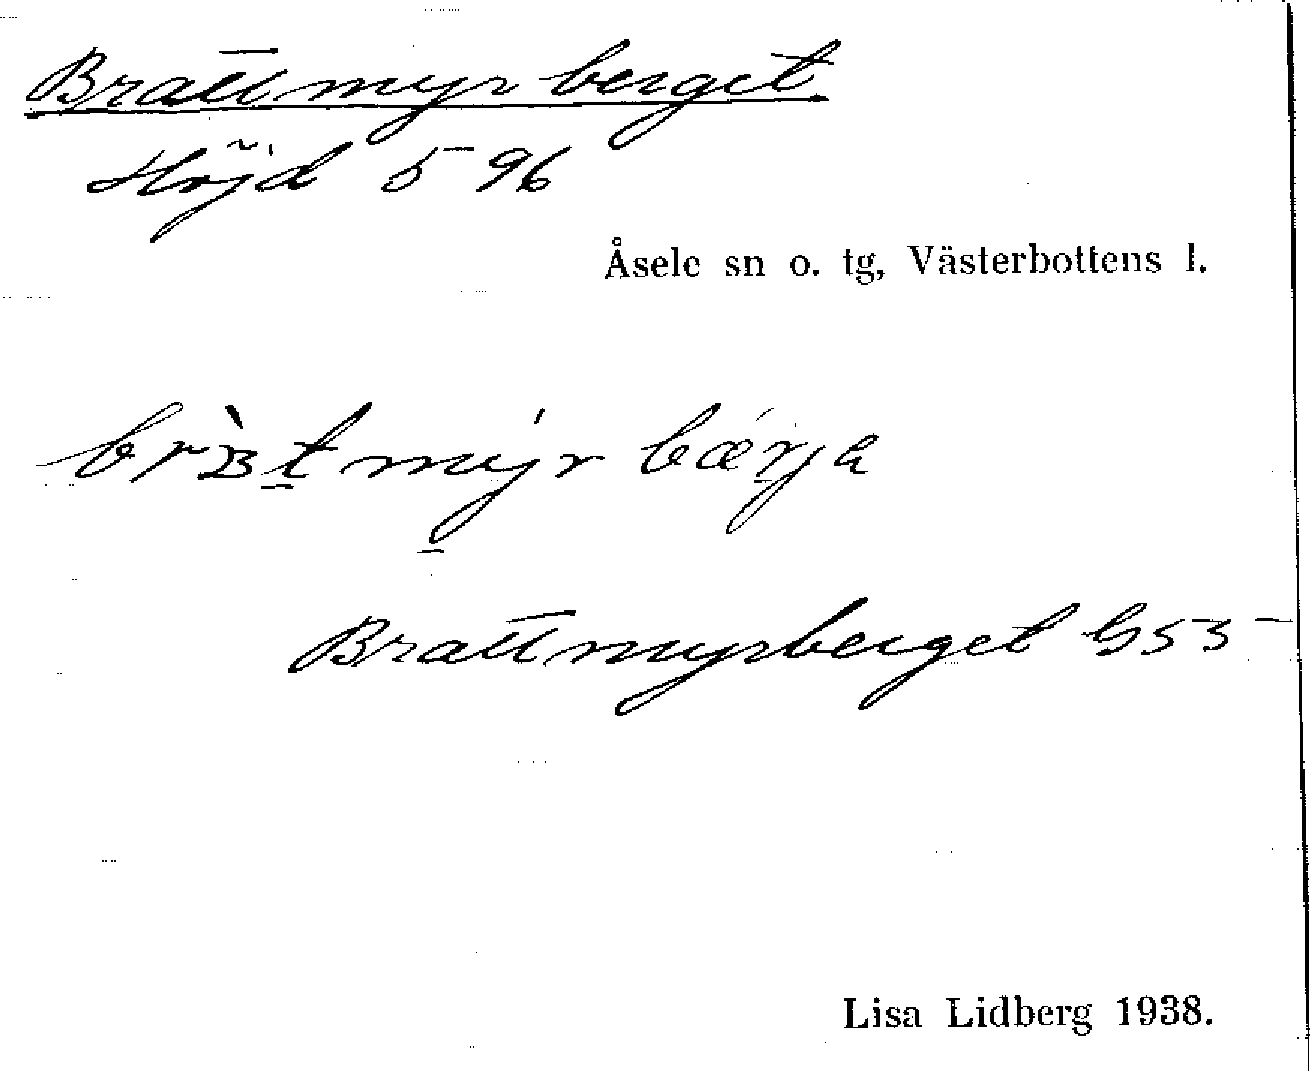 Brattmyrberget
Höjd 596
Åsele sn o. tg, Västerbottens l.
Brattmyrberget G55
Lisa Lidberg 1938.